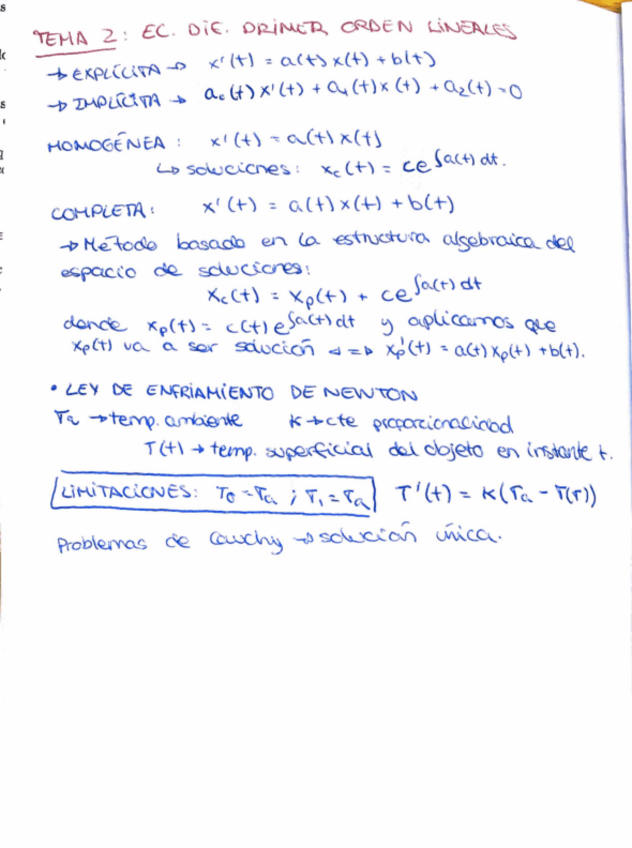 TEMA 2: EC. DIF. PRIMER ORDEN LINEALES
→ EXPLÍCITA → x'(t) = a(t) x(t) + b(t)
→ IMPLÍCITA → a₀(t) x'(t) + a₁(t) x(t) + a₂(t) = 0
HOMOGÉNEA: x'(t) = a(t) x(t)
↳ soluciones: x_c(t) = ce^∫a(t) dt.
COMPLETA: x'(t) = a(t) x(t) + b(t)
→ Método basado en la estructura algebraica del
espacio de soluciones:
x_c(t) = x_p(t) + ce^∫a(t) dt
donde x_p(t) = c(t) e^∫a(t) dt y aplicamos que
x_p(t) va a ser solución ⇔ x_p'(t) = a(t) x_p(t) + b(t).
• LEY DE ENFRIAMIENTO DE NEWTON
Ta → temp. ambiente K → cte proporcionalidad
T(t) → temp. superficial del objeto en instante t.
LIMITACIONES: T₀ = Ta ; T₁ = Ta T'(t) = K(Ta - T(t))
Problemas de Cauchy → solución única.